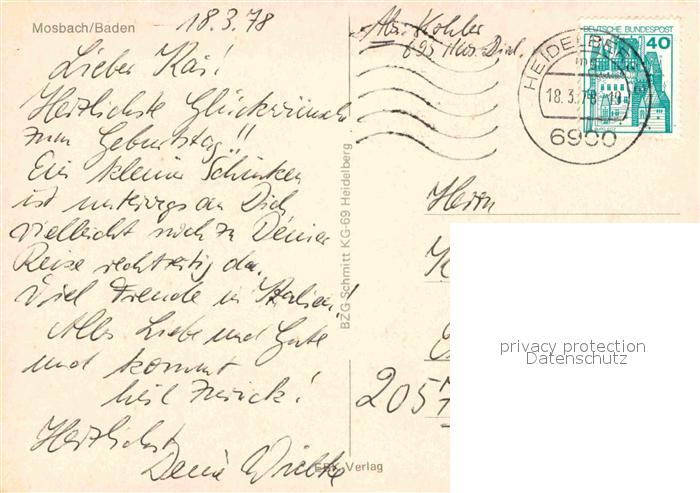 Mosbach/Baden
18.3.78
Lieber Kai!
Herzlichste Glückwünsche
zum Geburtstag!!
Ein kleine Schinken
ist unterwegs an Dich,
vielleicht noch zu Deiner
Reise rechtzeitig da.
Viel Freude in Italien!
Alles Liebe und Gute
und kommt
heil zurück!
Herzlichst
Deine Wiebke
BZG Schmitt KG-69 Heidelberg
EBK Verlag
Abs. Kohler
695 Mos.
HEIDELBERG
18.3.78-19
6900
DEUTSCHE BUNDESPOST
40
Herrn
2057
privacy protection
Datenschutz